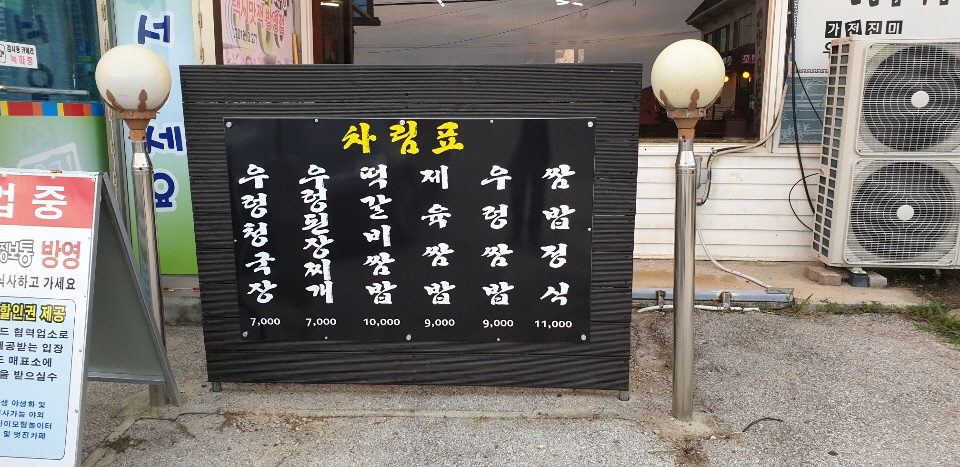 차림표
우렁청국장
7,000
우렁된장찌개
7,000
떡갈비쌈밥
10,000
제육쌈밥
9,000
우렁쌈밥
9,000
쌈밥정식
11,000
업 중
방영
식사하고 가세요
할인권 제공
협력업소로
제공받는 입장
매표소에
을 받으실수
및 멋진카페
가전진미
세요
녹화중